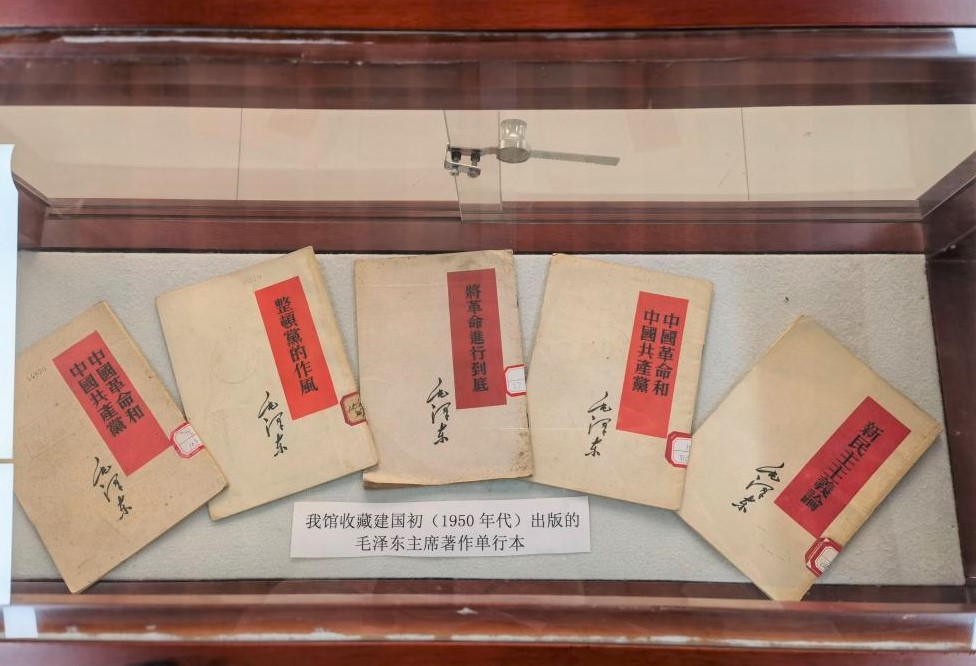 中國革命和
中國共產黨
毛泽东
整頓黨的作風
毛泽东
將革命進行到底
毛泽东
中國革命和
中國共產黨
毛泽东
新民主主義論
毛泽东
我馆收藏建国初（1950 年代）出版的
毛泽东主席著作单行本